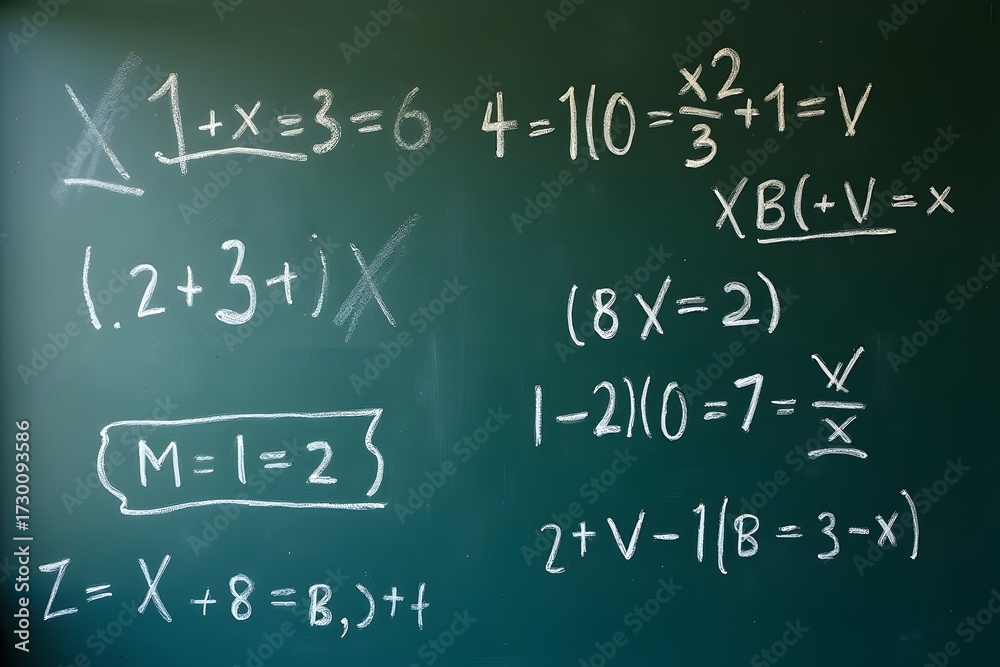 X 1+x=3=6
4=1(0=x2/3+1=V
XB(+V=x
(.2+3+)X
(8X=2)
1-2)(0=7=V/x
M=1=2
2+V-1(B=3-x)
Z=X+8=B,)++
Adobe Stock | #1730093586